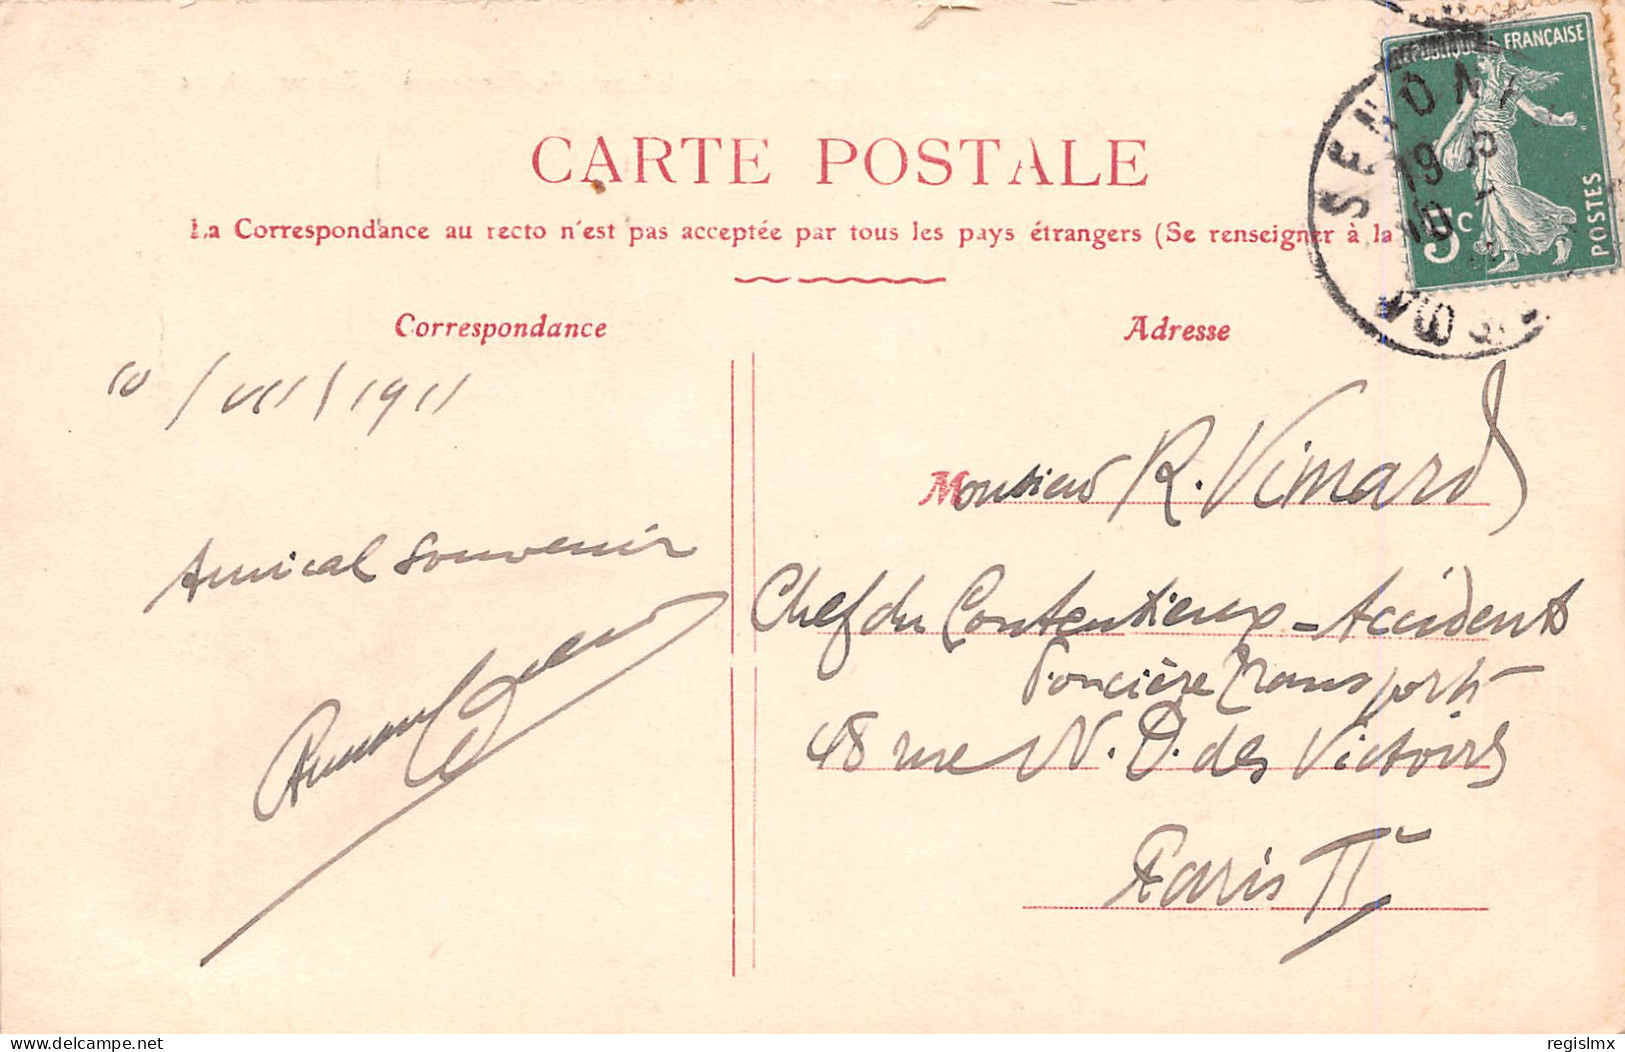 CARTE POSTALE
La Correspondance au recto n'est pas acceptée par tous les pays étrangers (Se renseigner à la
Correspondance
Adresse
RÉPUBLIQUE FRANÇAISE
5c
POSTES
SENON
19 35
10
10 / VII / 1911
Amical souvenir
Monsieur R. Vimard
Chef du Contentieux - Accidents
Foncière Transports
48 rue N. D. des Victoires
Paris II
delcampe.net
regislmx